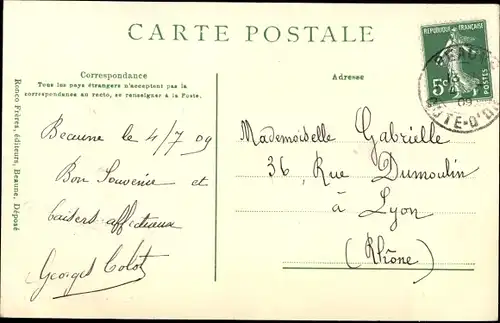 CARTE POSTALE
Correspondance
Tous les pays étrangers n'acceptent pas la
correspondance au recto, se renseigner à la Poste.
Adresse
RÉPUBLIQUE FRANÇAISE
5c
POSTES
09
CÔTE-D'OR
Beaune le 4/7 09
Bon Souvenir et
baisers affectueux
Georges
Mademoiselle Gabrielle
36, Rue Dumoulin
à Lyon
(Rhône)
Ronco Frères, éditeurs, Beaune, Déposé